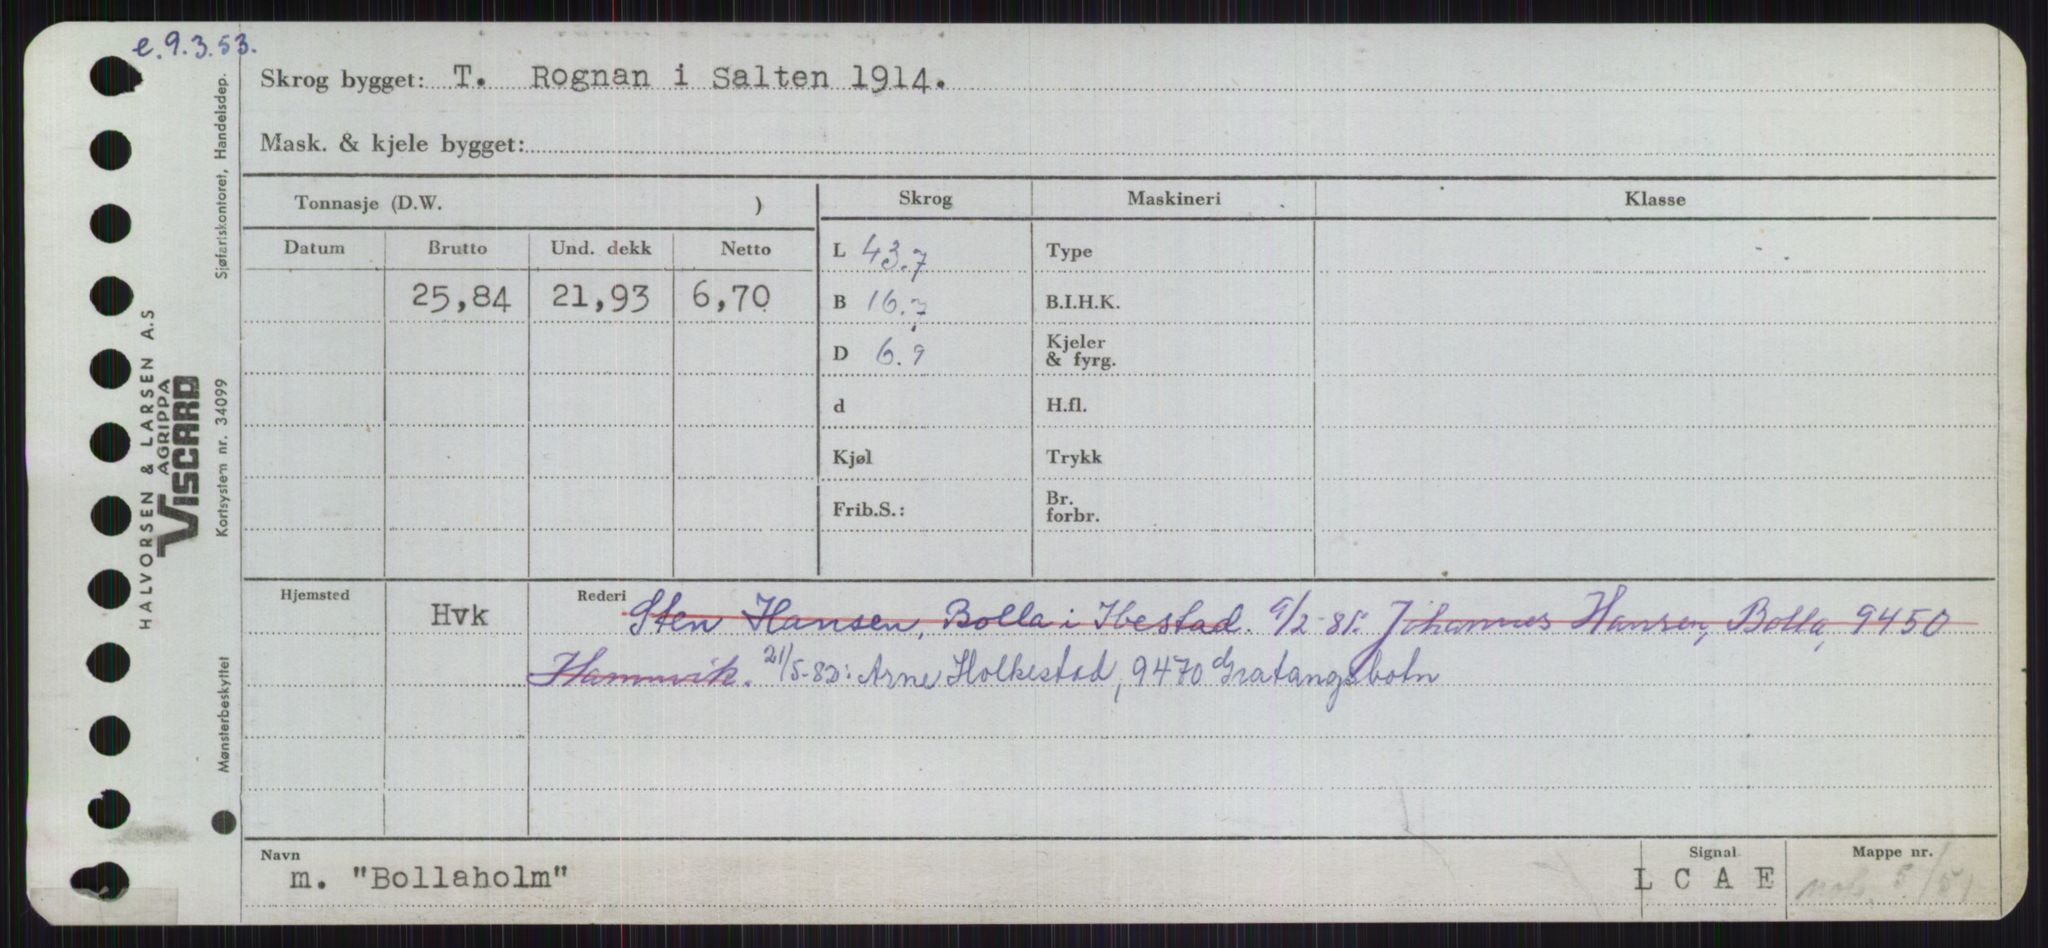 e. 9.3.53.
Skrog bygget: T. Rognan i Salten 1914.
Mask. & kjele bygget:
Tonnasje (D.W. )
Skrog Maskineri Klasse
Datum Brutto Und. dekk Netto
25,84 21,93 6,70
L 43.7 Type
B 16.7 B.I.H.K.
D 6.9 Kjeler & fyrg.
d H.fl.
Kjøl Trykk
Frib.S.: Br. forbr.
Hjemsted Hvk Rederi Sten Hansen, Bolla i Ibestad. 9/2-81: Johannes Hansen, Bolla, 9450
Hamnvik. 21/5-82: Arne Holkestad, 9470 Gratangsbotn
Navn Signal Mappe nr.
m. "Bollaholm" L C A E
HALVORSEN & LARSEN A.S
AGRIPPA
VISCARD
Mønsterbeskyttet Kortsystem nr. 34099 Sjøfartskontoret, Handelsdep.